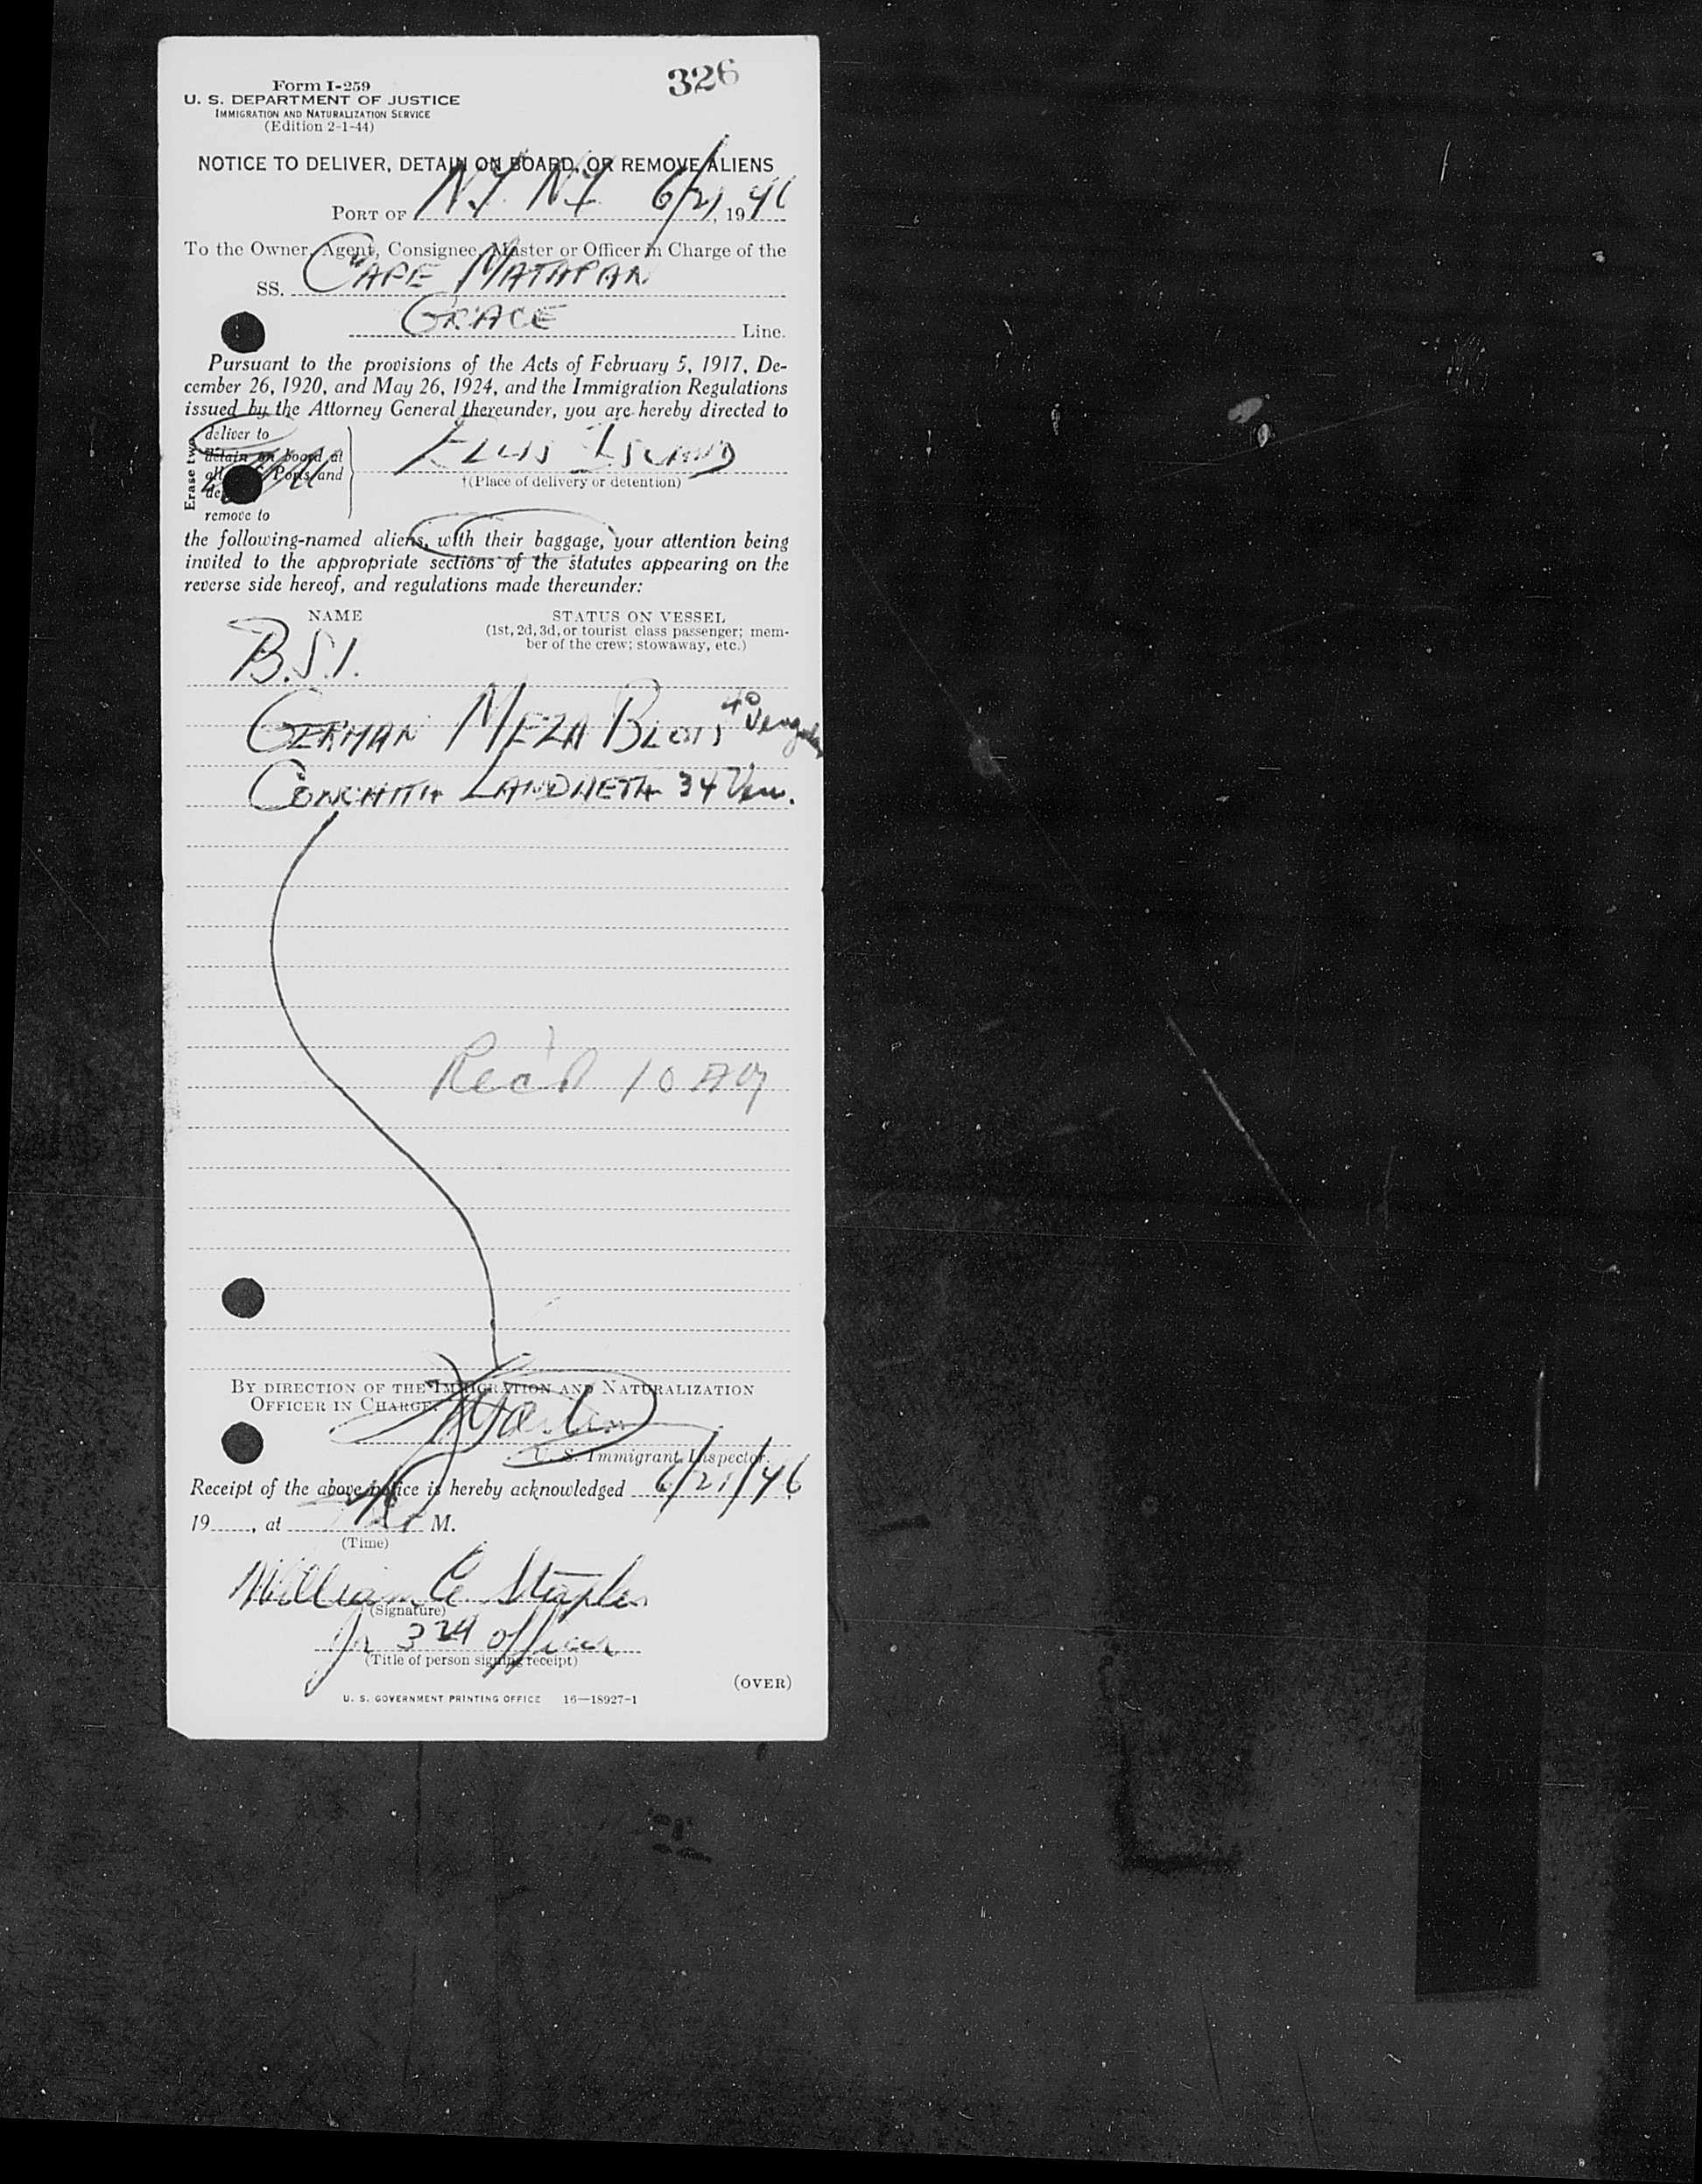 326
Form I-259
U. S. DEPARTMENT OF JUSTICE
IMMIGRATION AND NATURALIZATION SERVICE
(Edition 2-1-44)
NOTICE TO DELIVER, DETAIN ON BOARD, OR REMOVE ALIENS
PORT OF N.Y. N.Y. 6/21, 1946
To the Owner, Agent, Consignee, Master or Officer in Charge of the
SS. CAPE MATAPAN
GRACE Line.
Pursuant to the provisions of the Acts of February 5, 1917, De-
cember 26, 1920, and May 26, 1924, and the Immigration Regulations
issued by the Attorney General thereunder, you are hereby directed to
Erase two
deliver to
detain on board at
all Ports and
remove to
ELLIS ISLAND
†(Place of delivery or detention)
the following-named aliens, with their baggage, your attention being
invited to the appropriate sections of the statutes appearing on the
reverse side hereof, and regulations made thereunder:
NAME STATUS ON VESSEL
(1st, 2d, 3d, or tourist class passenger; mem-
ber of the crew; stowaway, etc.)
B.S.I.
GERMAN MEZA 40
CONCHITA LANDAETA 34 Ven.
Rec'd 10 AM
BY DIRECTION OF THE IMMIGRATION AND NATURALIZATION
OFFICER IN CHARGE.
U. S. Immigrant Inspector.
Receipt of the above notice is hereby acknowledged 6/21/46
19......, at M.
(Time)
William C Staples
(Signature)
Jr 3rd officer
(Title of person signing receipt)
(OVER)
U. S. GOVERNMENT PRINTING OFFICE 16—18927-1